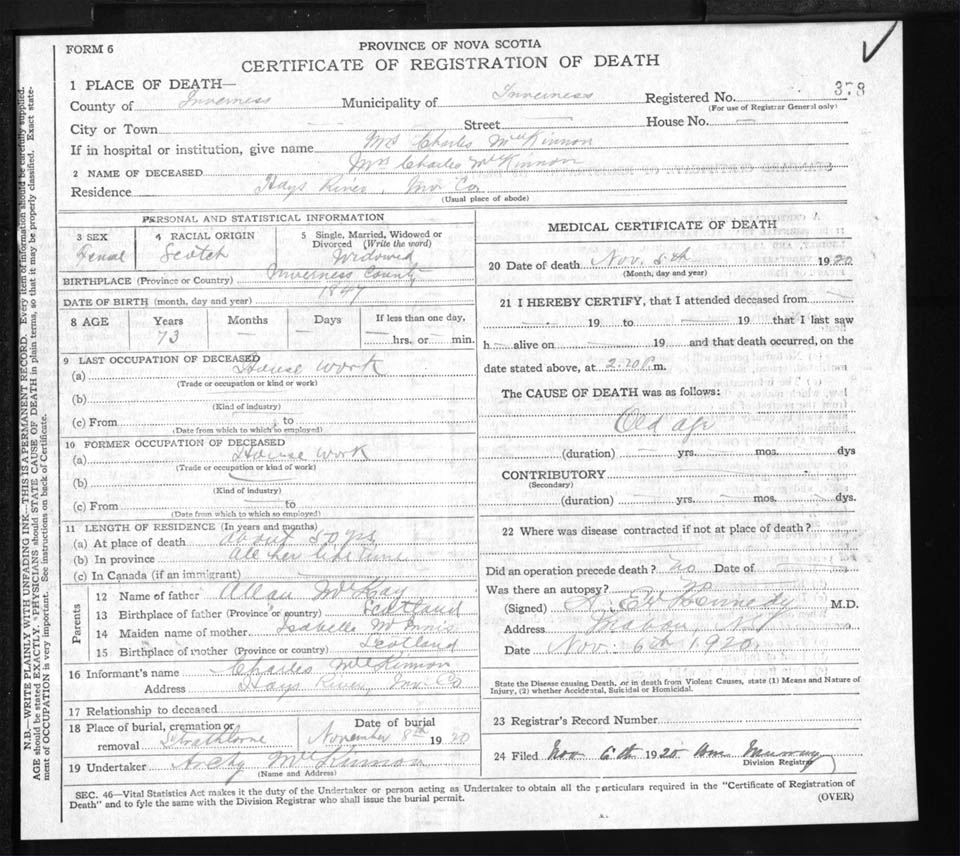 FORM 6
PROVINCE OF NOVA SCOTIA
CERTIFICATE OF REGISTRATION OF DEATH
1 PLACE OF DEATH—
County of Inverness Municipality of Inverness Registered No. 378
(For use of Registrar General only)
City or Town — Street — House No. —
If in hospital or institution, give name Mrs Charles McKinnon
2 NAME OF DECEASED Mrs Charles McKinnon
Residence Hays River, Inv Co
(Usual place of abode)
PERSONAL AND STATISTICAL INFORMATION
3 SEX
Femal
4 RACIAL ORIGIN
Scotch
5 Single, Married, Widowed or
Divorced (Write the word)
Widowed
BIRTHPLACE (Province or Country) Inverness County
DATE OF BIRTH (month, day and year) 1847
8 AGE Years Months Days If less than one day,
73 — — hrs. or min.
9 LAST OCCUPATION OF DECEASED
(a) House work
(Trade or occupation or kind or work)
(b)
(Kind of industry)
(c) From to
(Date from which to which so employed)
10 FORMER OCCUPATION OF DECEASED
(a) House work
(Trade or occupation or kind of work)
(b)
(Kind of industry)
(c) From to
(Date from which to which so employed)
11 LENGTH OF RESIDENCE (In years and months)
(a) At place of death about 50 yrs
(b) In province all her life time
(c) In Canada (if an immigrant)
Parents
12 Name of father Allan McKay
13 Birthplace of father (Province or country) Scotland
14 Maiden name of mother Isabella McInnis
15 Birthplace of mother (Province or country) Scotland
16 Informant's name Charles McKinnon
Address Hays River, Inv Co
17 Relationship to deceased
18 Place of burial, cremation or
removal Strathlorne
Date of burial
November 8th 1920
19 Undertaker Archy McKinnon
(Name and Address)
MEDICAL CERTIFICATE OF DEATH
20 Date of death Nov. 5th 1920
(Month, day and year)
21 I HEREBY CERTIFY, that I attended deceased from —
— 19 to — 19 that I last saw
h— alive on — 19 and that death occurred, on the
date stated above, at 2.20 P.m.
The CAUSE OF DEATH was as follows:
Old age
(duration) — yrs. — mos. dys
CONTRIBUTORY
(Secondary)
(duration) — yrs. — mos. — dys.
22 Where was disease contracted if not at place of death?
Did an operation precede death? no Date of —
Was there an autopsy? no
(Signed) Kennedy M.D.
Address Mabou, N.S.
Date Nov. 6th 1920
State the Disease causing Death, or in death from Violent Causes, state (1) Means and Nature of
Injury, (2) whether Accidental, Suicidal or Homicidal.
23 Registrar's Record Number
24 Filed Nov 6th 1920 Wm Murray
Division Registrar
SEC. 46—Vital Statistics Act makes it the duty of the Undertaker or person acting as Undertaker to obtain all the particulars required in the "Certificate of Registration of
Death" and to fyle the same with the Division Registrar who shall issue the burial permit.
(OVER)
N.B.—WRITE PLAINLY WITH UNFADING INK—THIS IS A PERMANENT RECORD. Every item of information should be carefully supplied.
AGE should be stated EXACTLY. PHYSICIANS should STATE CAUSE OF DEATH in plain terms, so that it may be properly classified. Exact state-
ment of OCCUPATION is very important. See instructions on back of Certificate.